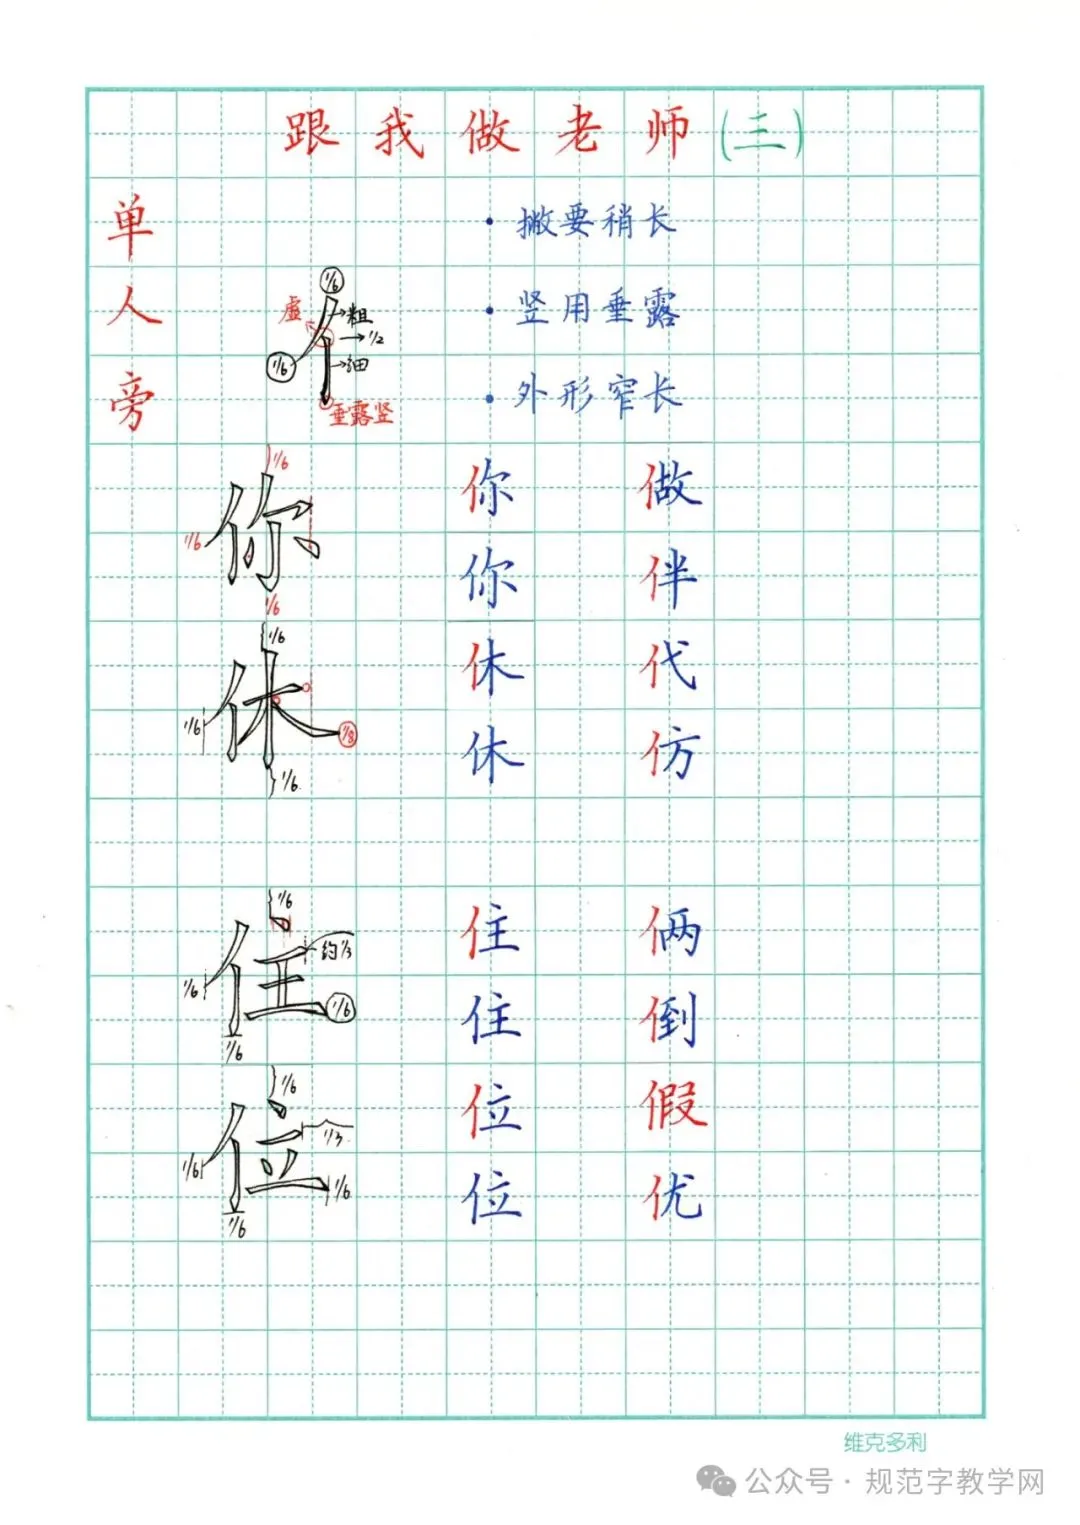 跟我做老师(三)
单人旁
• 撇要稍长
• 竖用垂露
• 外形窄长
1/6
虚
粗
1/2
1/6
细
垂露竖
亻
1/6
你
1/6
1/6
你 做
你 伴
1/6
休
1/6
1/8
1/6
休 代
休 仿
1/6
住
约1/3
1/6
1/6
1/6
住 俩
住 倒
1/6
位
1/3
1/6
1/6
1/6
位 假
位 优
维克多利
公众号·规范字教学网